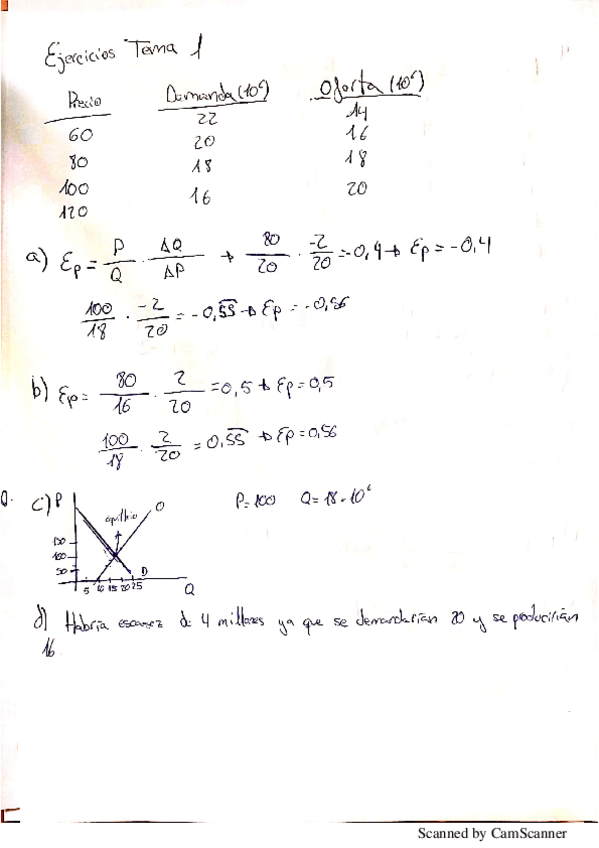 Ejercicios Tema 1
Precio Demanda (10⁶) Oferta (10⁶)
60 22 14
80 20 16
100 18 18
120 16 20
a) Ep = P/Q · ΔQ/ΔP → 80/20 · -2/20 = -0,4 → Ep = -0,4
100/18 · -2/20 = -0,55 → Ep = -0,56
b) Ep = 80/16 · 2/20 = 0,5 → Ep = 0,5
100/18 · 2/20 = 0,55 → Ep = 0,56
c) P O P = 100 Q = 18·10⁶
equilibrio
100
50
D
5 10 15 20 25
Q
d) Habría escasez de 4 millones ya que se demandarían 20 y se producirían
16
Scanned by CamScanner